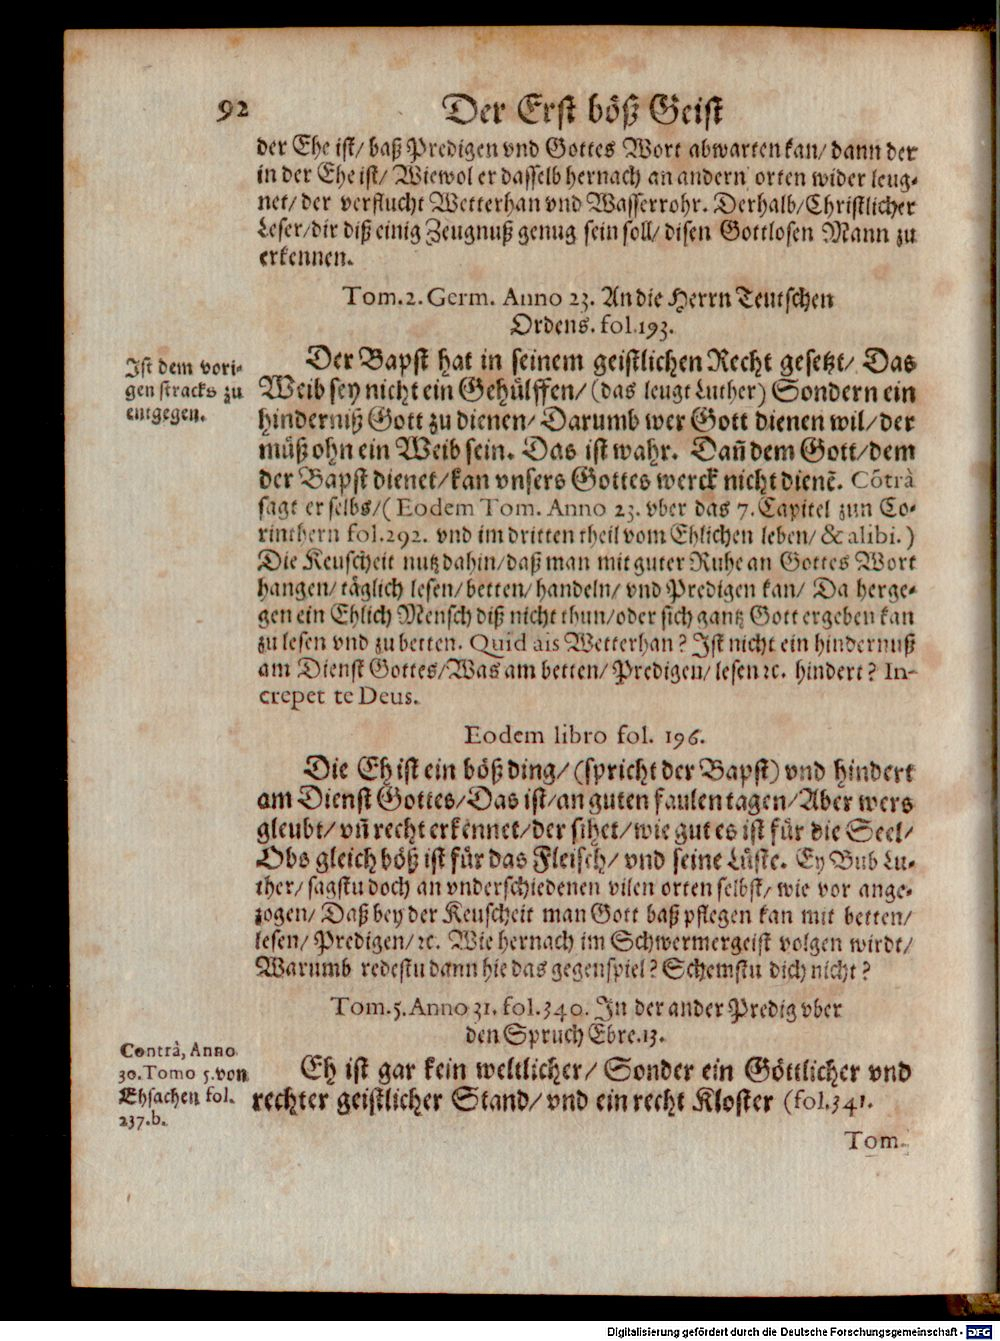 92 Der Erst böß Geist
der Ehe ist/ baß Predigen vnd Gottes Wort abwarten kan/ dann der
in der Ehe ist/ Wiewol er dasselb hernach an andern orten wider leug-
net/ der verflucht Wetterhan vnd Wasserrohr. Derhalb/ Christlicher
Leser/ dir diß einig Zeugnuß genug sein soll/ disen Gottlosen Mann zu
erkennen.
Tom. 2. Germ. Anno 23. An die Herrn Teutschen
Ordens. fol. 193.
Ist dem vori-
gen stracks zu
entgegen.
Der Bapst hat in seinem geistlichen Recht gesetzt/ Das
Weib sey nicht ein Gehülffen/ (das leugt Luther) Sondern ein
hinderniß Gott zu dienen/ Darumb wer Gott dienen wil/ der
müß ohn ein Weib sein. Das ist wahr. Dañ dem Gott/ dem
der Bapst dienet/ kan vnsers Gottes werck nicht dienē. Cōtrà
sagt er selbs/ (Eodem Tom. Anno 23. vber das 7. Capitel zun Co-
rinthern fol. 292. vnd im dritten theil vom Ehlichen leben/ & alibi.)
Die Keuscheit nutz dahin/ daß man mit guter Ruhe an Gottes Wort
hangen/ täglich lesen/ betten/ handeln/ vnd Predigen kan/ Da herge-
gen ein Ehlich Mensch diß nicht thun/ oder sich gantz Gott ergeben kan
zu lesen vnd zu betten. Quid ais Wetterhan? Ist nicht ein hindernuß
am Dienst Gottes/ Was am betten/ Predigen/ lesen ꝛc. hindert? In-
crepet te Deus.
Eodem libro fol. 196.
Die Eh ist ein böß ding/ (spricht der Bapst) vnd hindert
am Dienst Gottes/ Das ist/ an guten faulen tagen/ Aber wers
gleubt/ vñ recht erkennet/ der sihet/ wie gut es ist für die Seel/
Obs gleich böß ist für das Fleisch/ vnd seine Lüste. Ey Bub Lu-
ther/ sagstu doch an vnderschiedenen vilen orten selbst/ wie vor ange-
zogen/ Daß bey der Keuscheit man Gott baß pflegen kan mit betten/
lesen/ Predigen/ ꝛc. Wie hernach im Schwermergeist volgen wirdt/
Warumb redestu dann hie das gegenspiel? Schemstu dich nicht?
Tom. 5. Anno 31. fol. 340. In der ander Predig vber
den Spruch Ebre. 13.
Contrà, Anno
30. Tomo 5. von
Ehsachen fol.
237. b.
Eh ist gar kein weltlicher/ Sonder ein Göttlicher vnd
rechter geistlicher Stand/ vnd ein recht Kloster (fol. 341.
Tom.
Digitalisierung gefördert durch die Deutsche Forschungsgemeinschaft - DFG